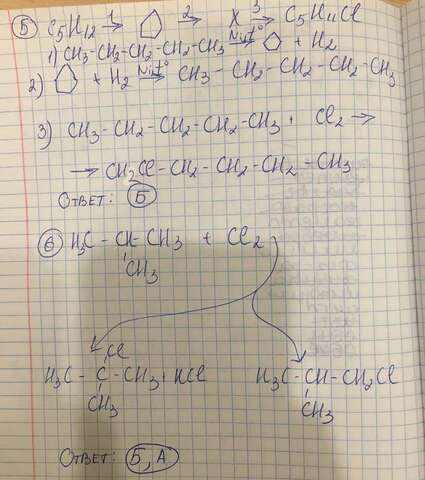 ⑤ C5H12 1→ ⬠ 2→ X 3→ C5H11Cl
1) CH3-CH2-CH2-CH2-CH3 Ni,t°→ ⬠ + H2
2) ⬠ + H2 Ni,t°→ CH3 - CH2-CH2-CH2-CH3
3) CH3-CH2-CH2-CH2-CH3 + Cl2 →
→ CH2Cl-CH2-CH2-CH2-CH3
ОТВЕТ: Б
⑥ H3C - CH-CH3 + Cl2
CH3
Cl
H3C - C - CH3 + HCl
CH3
H3C-CH-CH2Cl
CH3
ОТВЕТ: Б, А